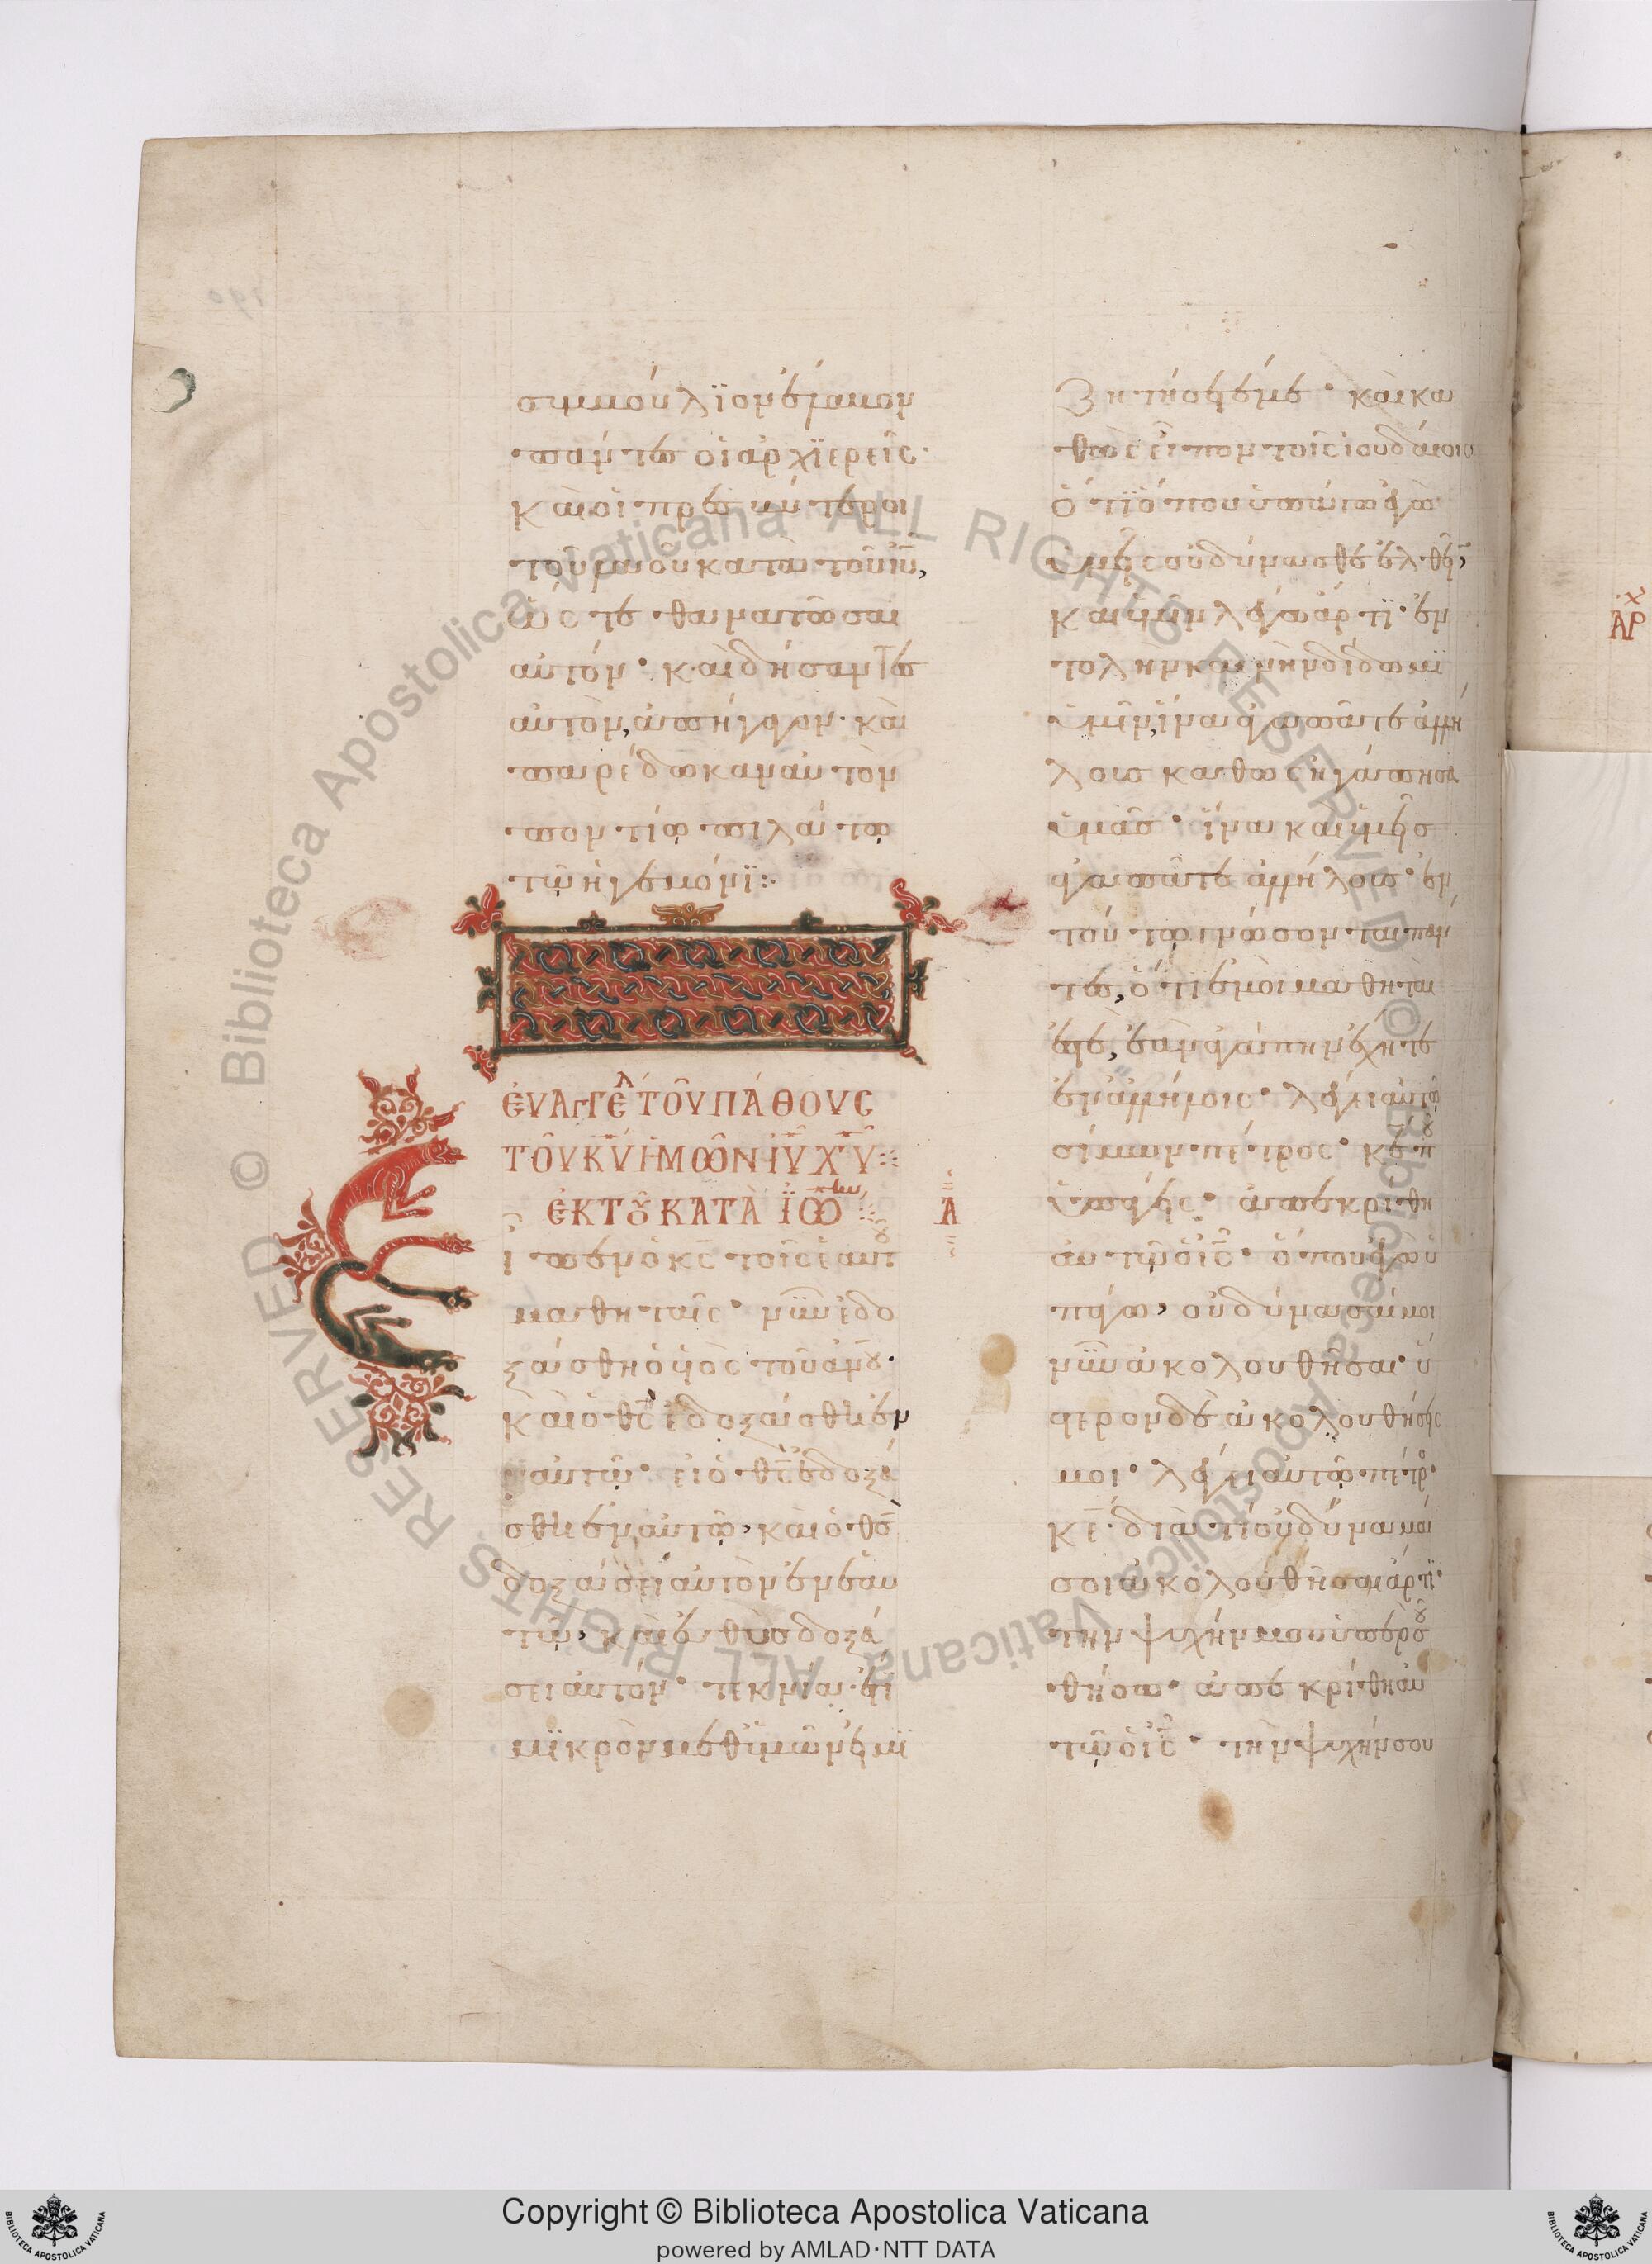 συμβούλϊον ἔλαβον
πάντες οἱ ἀρχϊερεῖς·
καὶ οἱ πρεσβύτεροι
τοῦ λαοῦ κατὰ τοῦ ἰῦ,
ὥστε θανατῶσαι
αὐτόν· καὶ δήσαντες
αὐτὸν, ἀπήγαγον· καὶ
παρέδωκαν αὐτὸν
ποντίῳ πιλάτῳ
τῷ ἡγεμόνϊ:
ἘΥΑΓΓΕΛ ΤΟῦ ΠΆΘΟΥΣ
ΤΟῦ ΚΥ ἩΜῶΝ ΙΥ ΧΥ
ἘΚ ΤΟῦ ΚΑΤΑ ἸΩ
Α
Εἶπεν ὁ κς τοῖς ἑαυτοῦ
μαθηταῖς· νῦν ἐδο
ξάσθη ὁ υἱὸς τοῦ ἀνου·
καὶ ὁ θς ἐδοξάσθη ἐν
αὐτῷ· εἰ ὁ θς ἐδοξά
σθη ἐν αὐτῷ, καὶ ὁ θς
δοξάσει αὐτὸν ἐν ἑαυ
τῷ, καὶ εὐθὺς δοξά
σει αὐτόν· τεκνία· ἔτι
μϊκρὸν μεθ' ὑμῶν εἰμϊ
Ζητήσετέ με· καὶ κα
θὼς εἶπον τοῖς ἰουδαίοις
ὅτϊ ὅπου ὑπάγω ἐγὼ
ὑμεῖς οὐ δύνασθε ἐλθεῖν,
καὶ ὑμῖν λέγω ἄρτϊ· ἐν
τολὴν καινὴν δίδωμϊ
ὑμῖν, ἵνα ἀγαπᾶτε ἀλλή
λους καθὼς ἠγάπησα
ὑμᾶς· ἵνα καὶ ὑμεῖς
ἀγαπᾶτε ἀλλήλους· ἐν
τούτῳ γνώσονται πάν
τες, ὅτι ἐμοὶ μαθηταὶ
ἐστὲ, ἐὰν ἀγάπην ἔχητε
ἐν ἀλλήλοις· λέγει αὐτῷ
σίμων πέτρος· κε ποῦ
ὑπάγεις· ἀπεκρίθη
αὐτῷ ὁ ις· ὅπου ἐγὼ ὑ
πάγω, οὐ δύνασαί μοι
νῦν ἀκολουθῆσαι· ὕ
στερον δὲ ἀκολουθήσεις
μοι· λέγει αὐτῷ πέτρος·
κε· διὰ τί οὐ δύναμαί
σοι ἀκολουθῆσαι ἄρτϊ·
τὴν ψυχήν μου ὑπὲρ σοῦ
θήσω· ἀπεκρίθη αὐ
τῷ ὁ ις· τὴν ψυχήν σου
ΑΡΧ
Copyright © Biblioteca Apostolica Vaticana
powered by AMLAD·NTT DATA